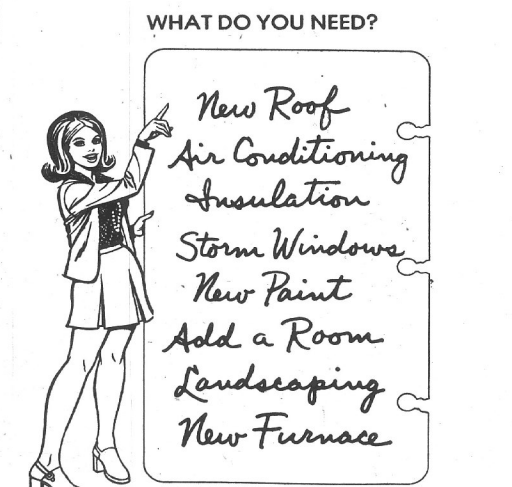 WHAT DO YOU NEED?
New Roof
Air Conditioning
Insulation
Storm Windows
New Paint
Add a Room
Landscaping
New Furnace